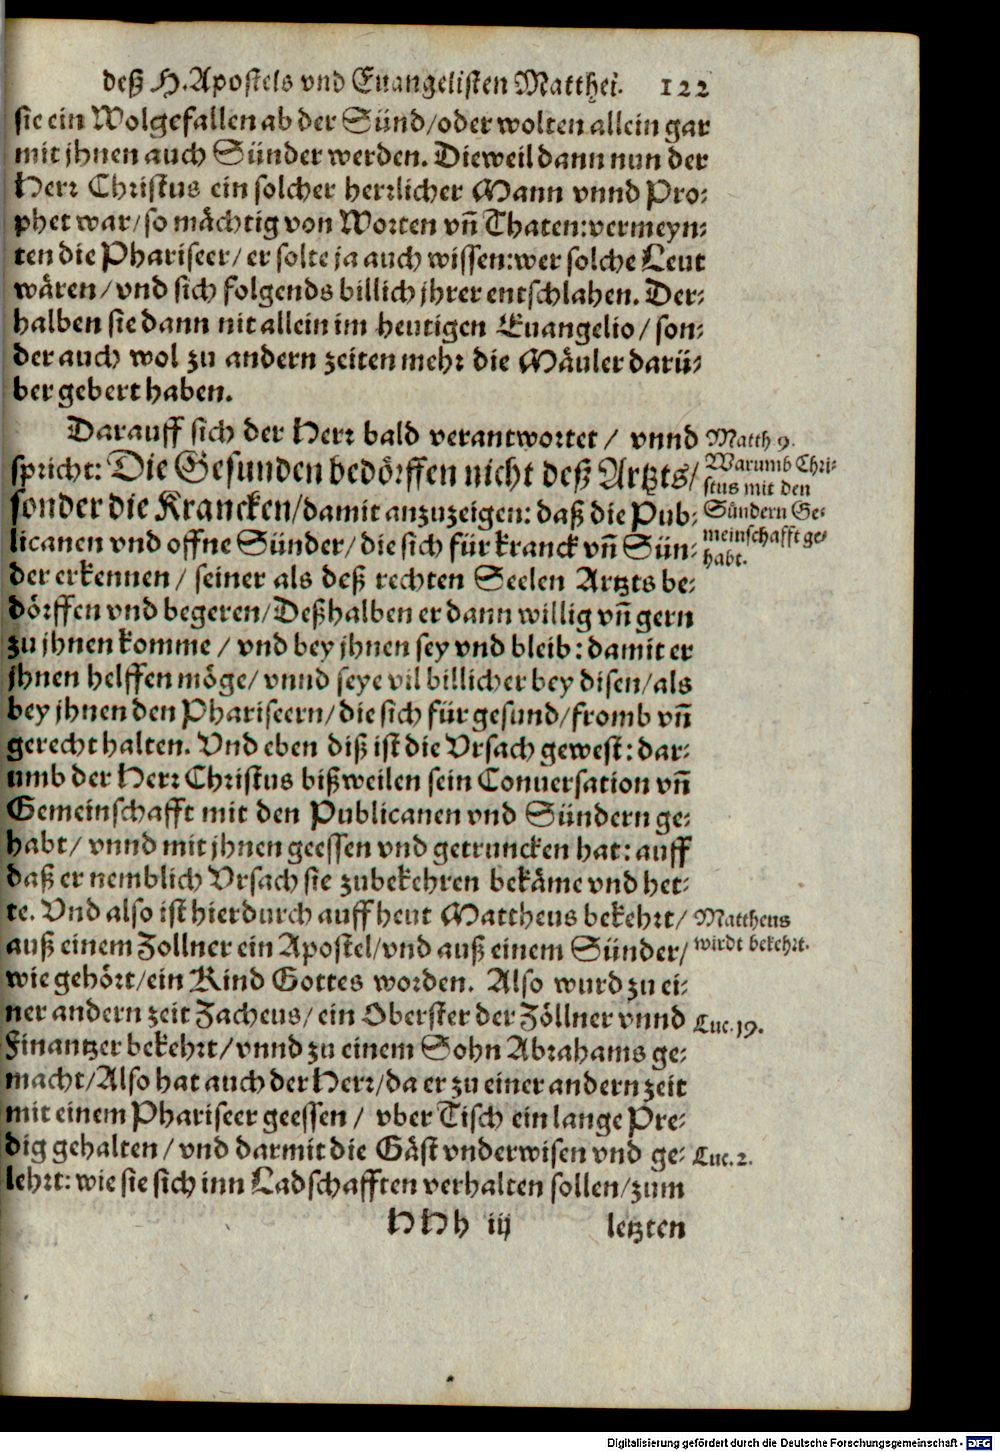 deß H. Apostels vnd Euangelisten Matthei. 122
sie ein Wolgefallen ab der Sünd/oder wolten allein gar
mit jhnen auch Sünder werden. Dieweil dann nun der
Herr Christus ein solcher herrlicher Mann vnnd Pro-
phet war/so mächtig von Worten vñ Thaten: vermeyn-
ten die Phariseer/ er solte ja auch wissen: wer solche Leut
wären/ vnd sich folgends billich jhrer entschlahen. Der-
halben sie dann nit allein im heutigen Euangelio/ son-
der auch wol zu andern zeiten mehr die Mäuler darü-
ber gebert haben.
Darauff sich der Herr bald verantwortet/ vnnd
spricht: Die Gesunden bedörffen nicht deß Artzts/
sonder die Krancken/damit anzuzeigen: daß die Pub-
licanen vnd offne Sünder/ die sich für kranck vñ Sün-
der erkennen/ seiner als deß rechten Seelen Artzts be-
dörffen vnd begeren/ Deßhalben er dann willig vñ gern
zu jhnen komme/ vnd bey jhnen sey vnd bleib: damit er
jhnen helffen möge/ vnnd seye vil billicher bey disen/ als
bey jhnen den Phariseern/ die sich für gesund/ fromb vñ
gerecht halten. Vnd eben diß ist die Vrsach gewest: dar-
umb der Herr Christus bißweilen sein Conuersation vñ
Gemeinschafft mit den Publicanen vnd Sündern ge-
habt/ vnnd mit jhnen geessen vnd getruncken hat: auff
daß er nemblich Vrsach sie zubekehren bekäme vnd het-
te. Vnd also ist hierdurch auff heut Mattheus bekehrt/
auß einem Zollner ein Apostel/vnd auß einem Sünder/
wie gehört/ein Kind Gottes worden. Also wurd zu ei-
ner andern zeit Zacheus/ ein Oberster der Zöllner vnnd
Finantzer bekehrt/ vnnd zu einem Sohn Abrahams ge-
macht/Also hat auch der Herr/da er zu einer andern zeit
mit einem Phariseer geessen/ vber Tisch ein lange Pre-
dig gehalten/ vnd darmit die Gäst vnderwisen vnd ge-
lehrt: wie sie sich inn Ladschafften verhalten sollen/ zum
HHh iij letzten
Matth 9.
Warumb Chri-
stus mit den
Sündern Ge-
meinschafft ge-
habt.
Mattheus
wirdt bekehrt.
Luc. 19.
Luc. 2.
Digitalisierung gefördert durch die Deutsche Forschungsgemeinschaft - DFG